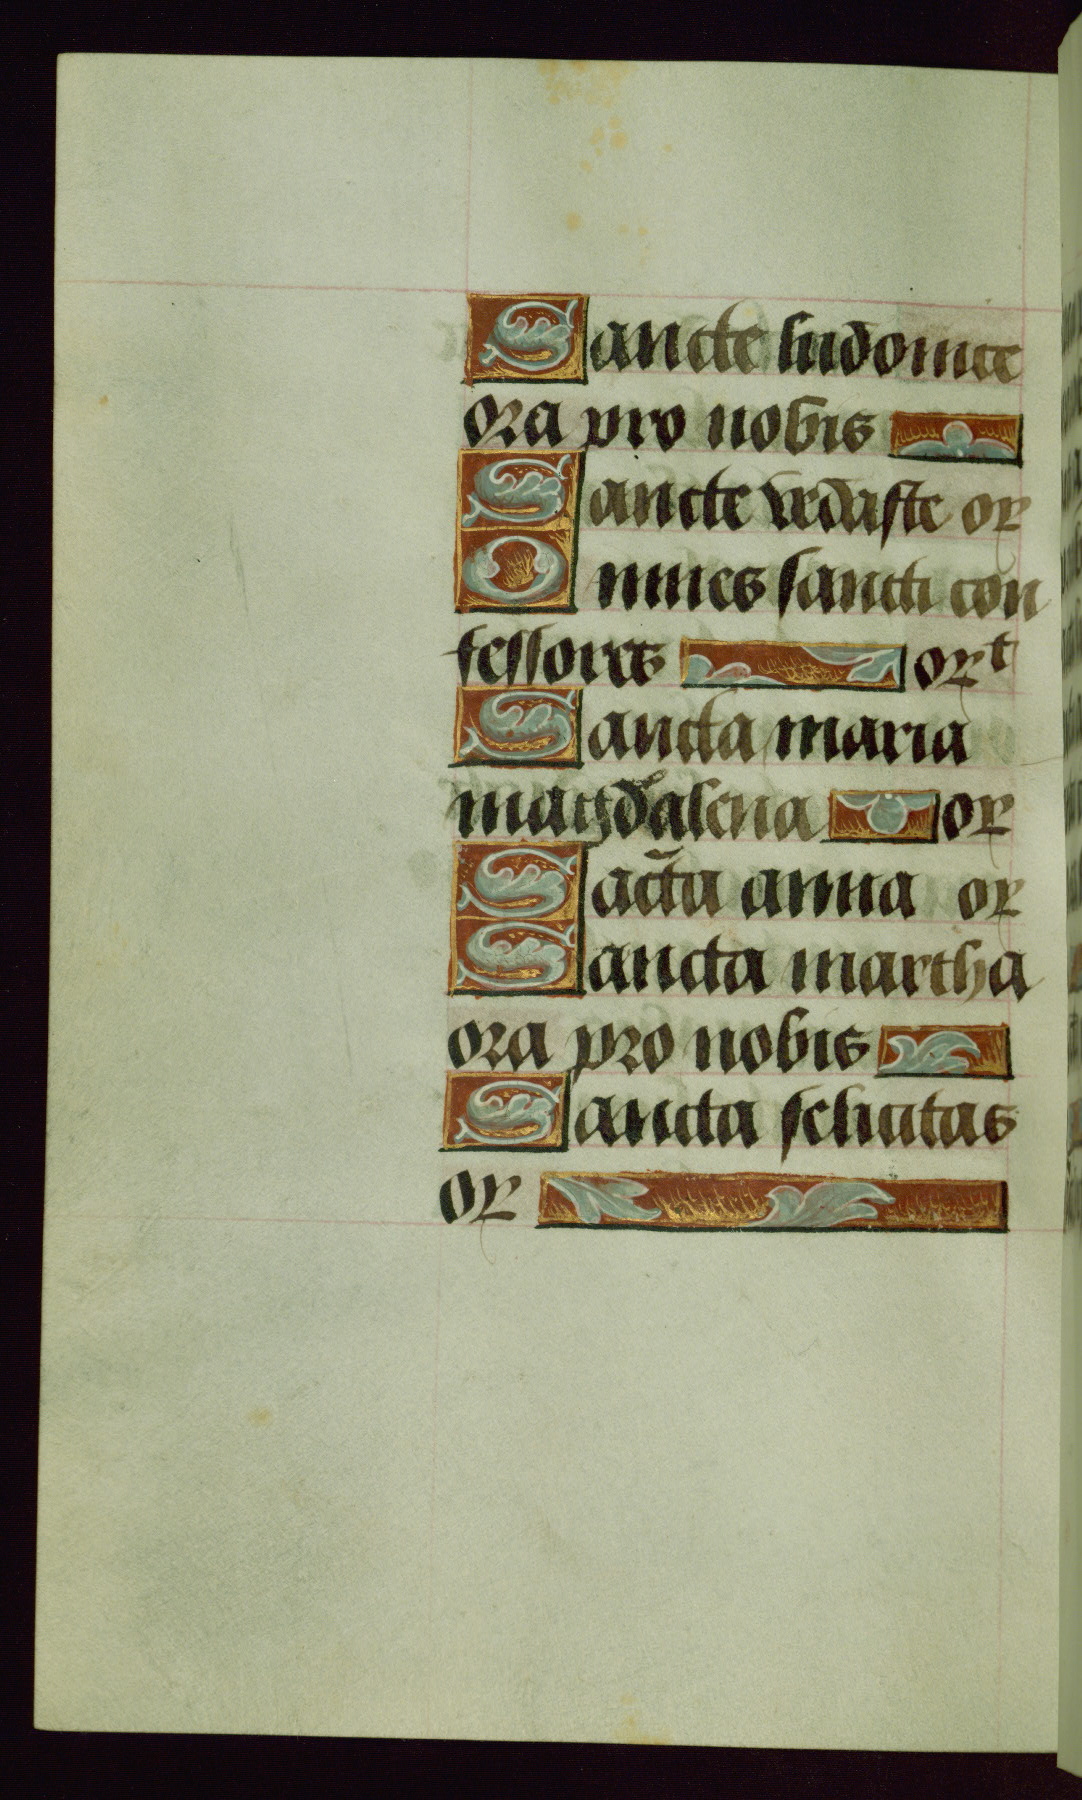 Sancte ludouice
ora pro nobis
Sancte vedaste or
Omnes sancti con
fessores ort
Sancta maria
magdalena or
Sācta anna or
Sancta martha
ora pro nobis
Sancta felicitas
or